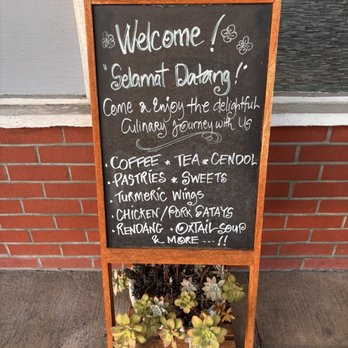 Welcome!
"Selamat Datang!"
Come & Enjoy the delightful
Culinary Journey with Us
• COFFEE • TEA • CENDOL
• PASTRIES • SWEETS
• TURMERIC WINGS
• CHICKEN/PORK SATAYS
RENDANG • OXTAIL SOUP
& MORE ....!!